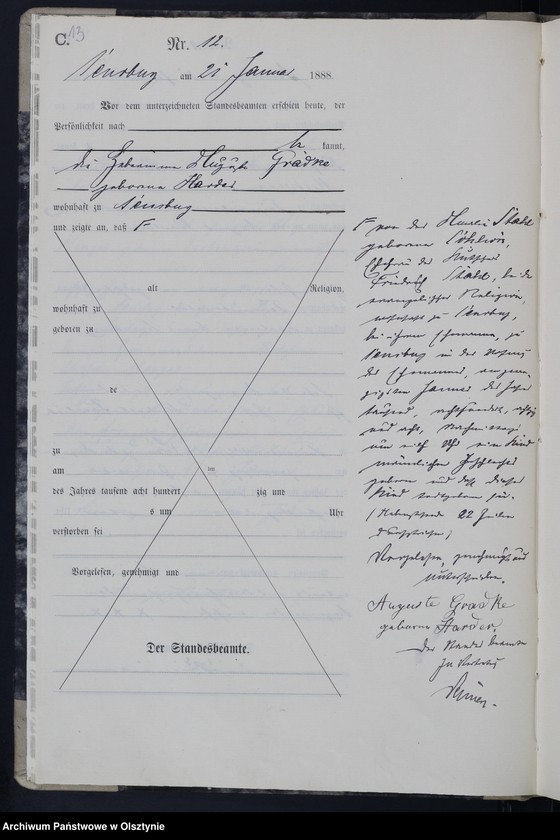 C. 13
Nr. 12.
am 21 Januar 1888.
Vor dem unterzeichneten Standesbeamten erschien heute, der
Persönlichkeit nach
be kannt,
die Hebamme Auguste Gradke
geborene Harder
wohnhaft zu Sensburg
und zeigte an, daß
alt Religion,
wohnhaft zu
geboren zu
de
zu
am
des Jahres tausend acht hundert zig und
s um Uhr
verstorben sei
Vorgelesen, genehmigt und
Der Standesbeamte.
von der
geborene
Ehefrau des
Friedrich bei de
evangelischer Religion,
wohnhaft zu Sensburg,
bei ihrem Ehemanne, zu
Sensburg in der Wohnung
des Ehemannes, am
Januar des Jahres
tausend, achthundert, achtzig
und acht, Nachmittags
um Uhr ein Kind
männlichen Geschlechts
geboren und daß dieses
Kind sei.
22 Zeilen
Vorgelesen, genehmigt und
unterschrieben.
Auguste Gradke
geborene Harder
Der Standesbeamte
In Vertretung
Archiwum Państwowe w Olsztynie